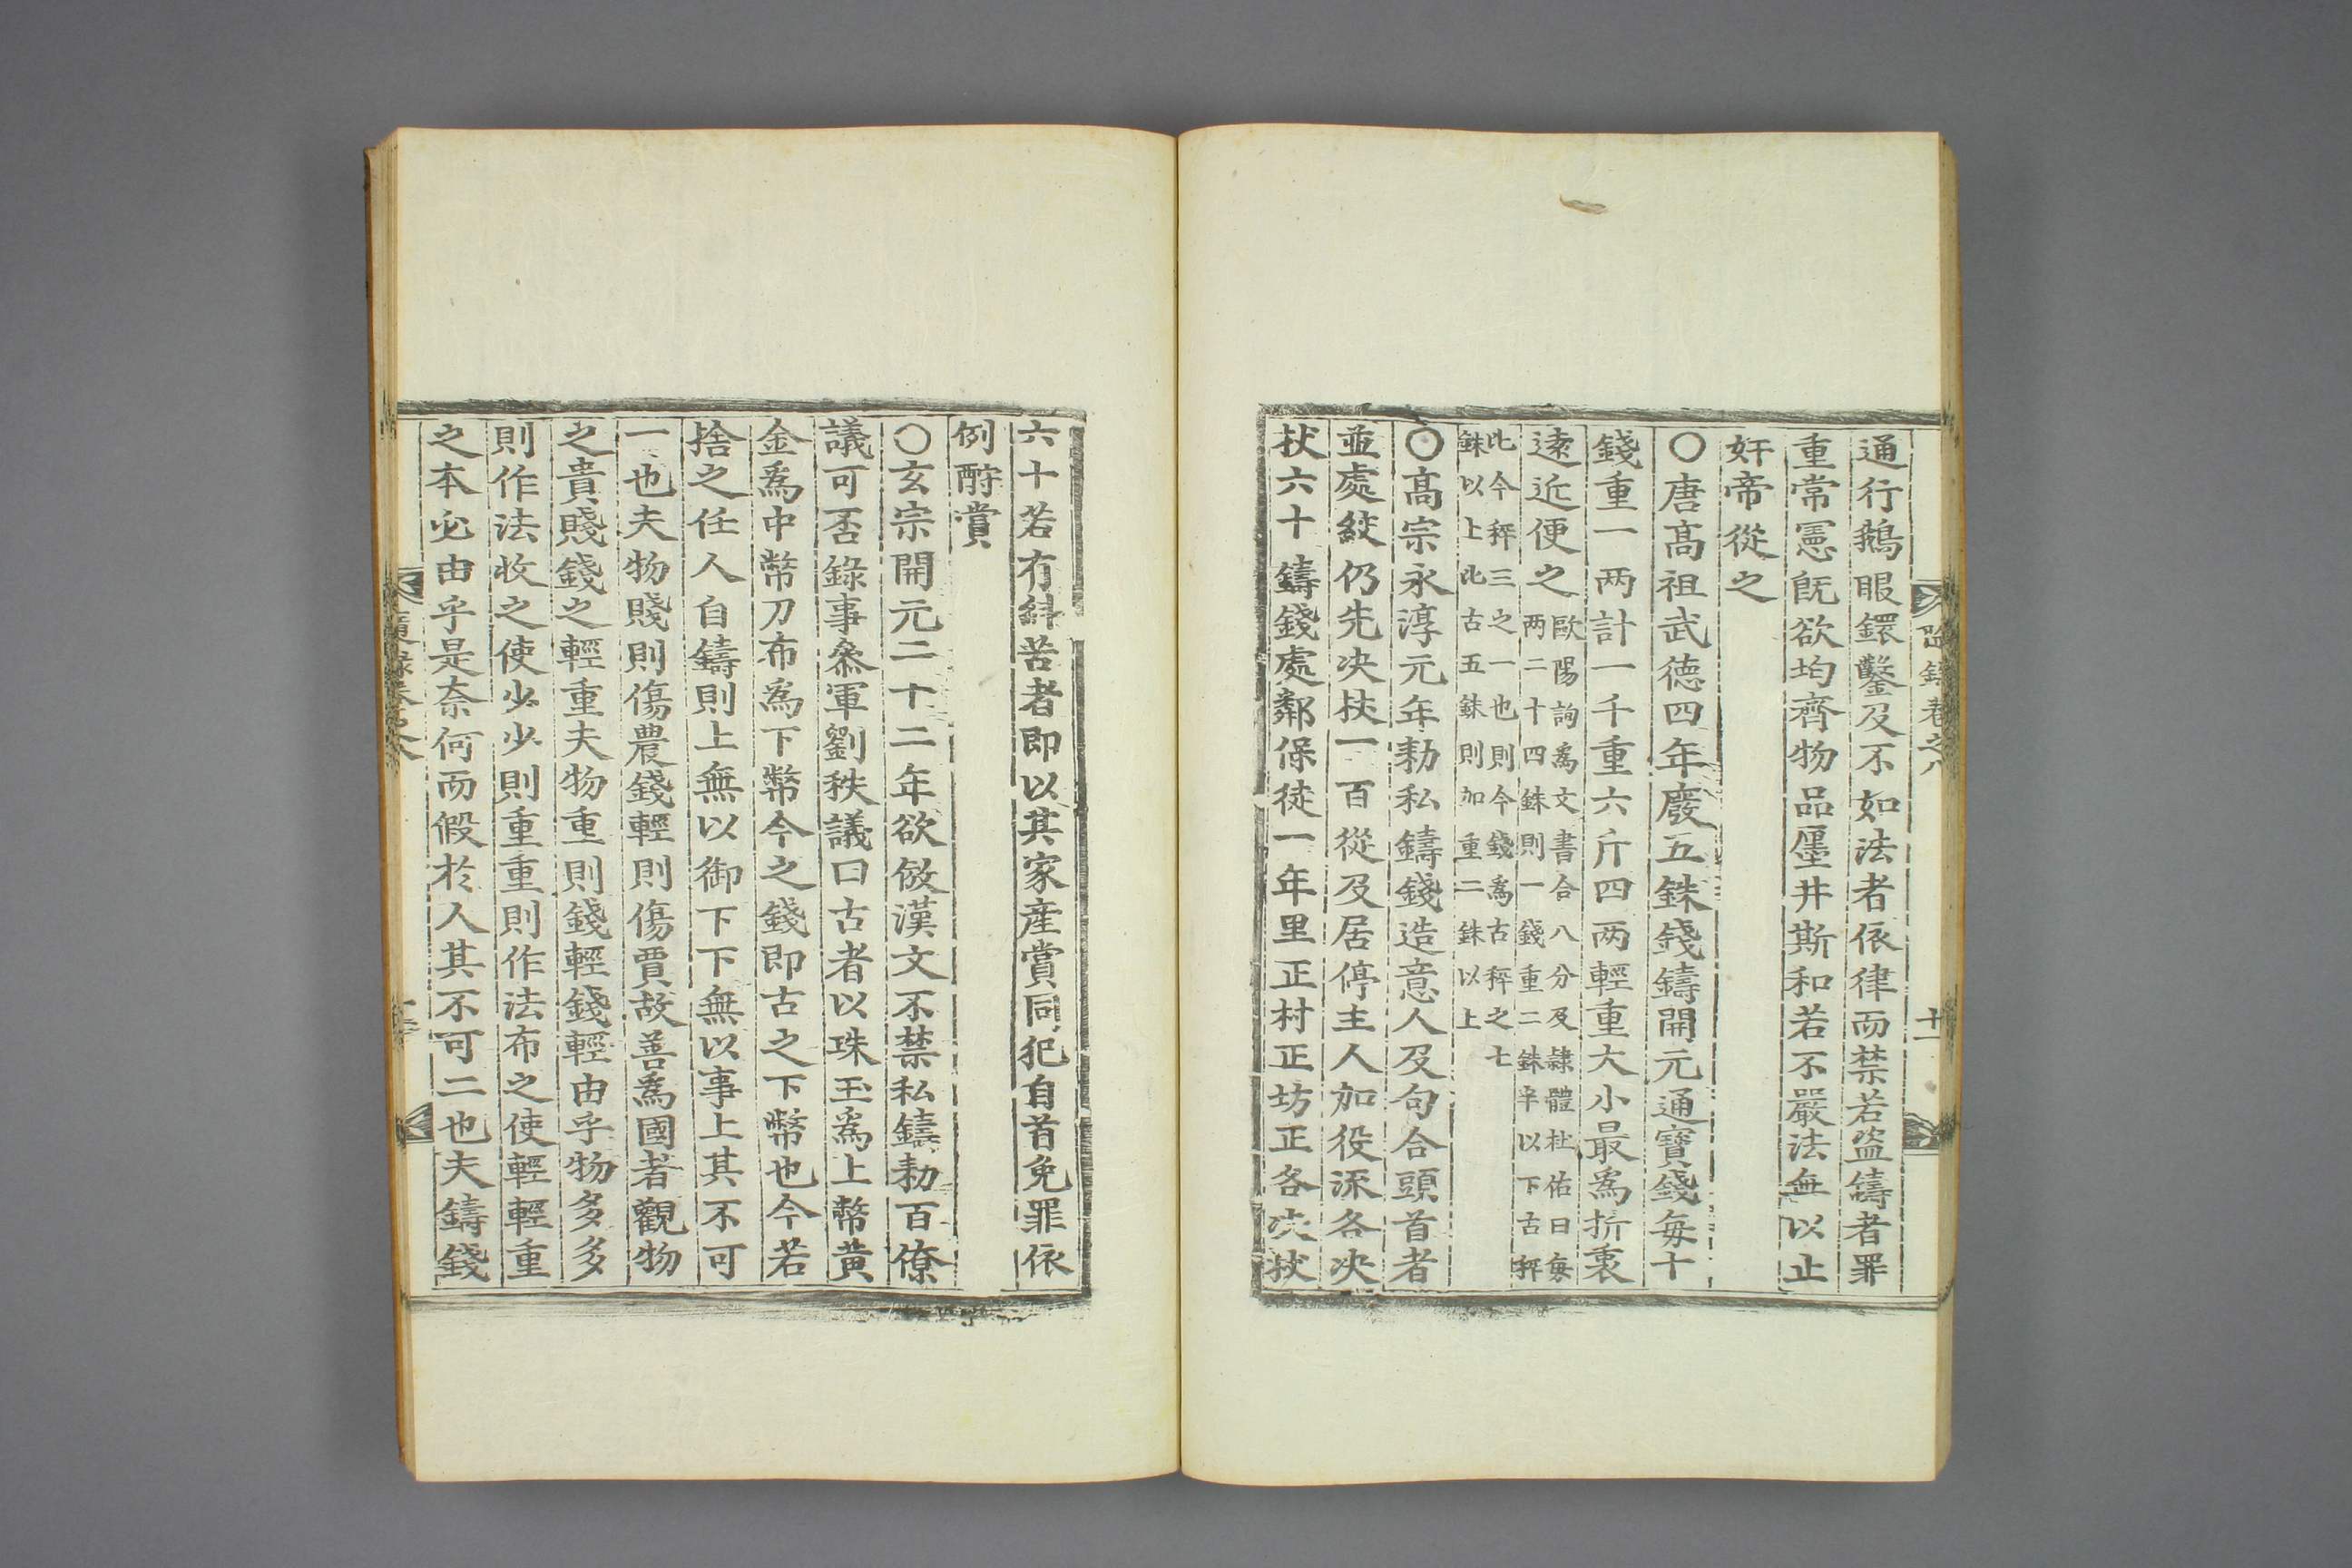 通行鵝眼鐶鑿及不如法者依律而禁若盜鑄者罪
重常憲旣欲均齊物品廛井斯和若不嚴法無以止
奸帝從之
○唐高祖武德四年廢五銖錢鑄開元通寶錢每十
錢重一两計一千重六斤四两輕重大小最爲折衷
遠近便之
歐陽詢爲文書合八分及隷體杜佑曰每
两二十四銖則一錢重二銖半以下古秤
比今秤三之一也則今錢爲古秤之七
銖以上比古五銖則加重二銖以上
○高宗永淳元年勑私鑄錢造意人及句合頭首者
並處絞仍先决杖一百從及居停主人加役流各决
杖六十鑄錢處鄰保徒一年里正村正坊正各决杖
六十若有糾告者即以其家産賞同犯自首免罪依
例酧賞
○玄宗開元二十二年欲倣漢文不禁私鑄勑百僚
議可否錄事叅軍劉秩議曰古者以珠玉爲上幣黃
金爲中幣刀布爲下幣今之錢即古之下幣也今若
捨之任人自鑄則上無以御下下無以事上其不可
一也夫物賤則傷農錢輕則傷賈故善爲國者觀物
之貴賤錢之輕重夫物重則錢輕錢輕由乎物多多
則作法收之使少少則重重則作法布之使輕輕重
之本必由乎是奈何而假於人其不可二也夫鑄錢